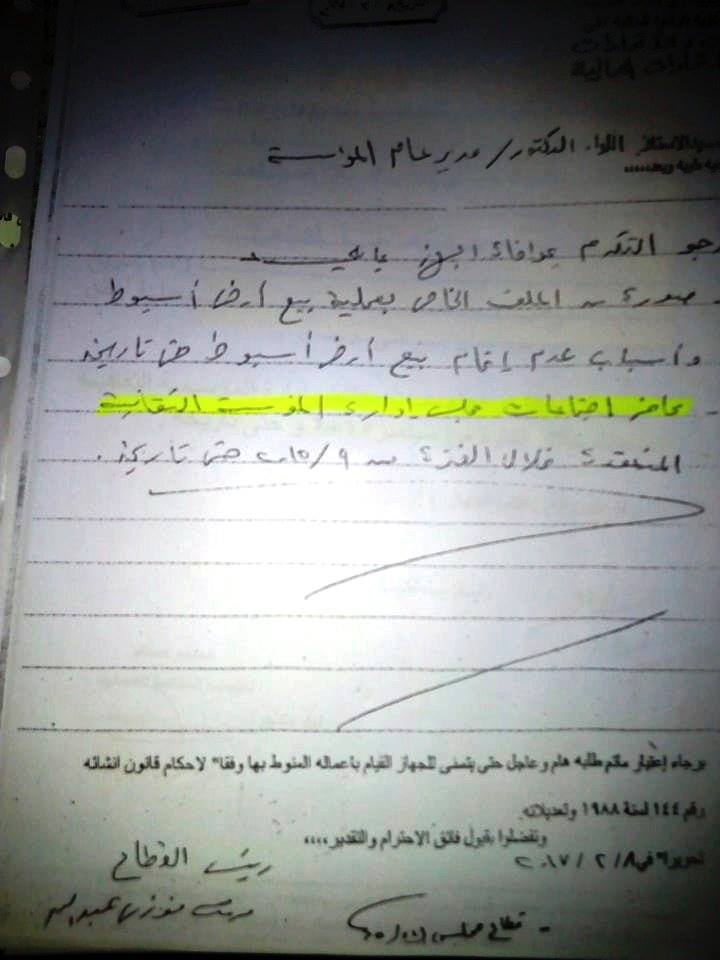 السيد الأستاذ اللواء الدكتور / مدير عام المؤسسة
تحية طيبة وبعد.....
نرجو التكرم بموافاة الجهاز بما يلي
- صورة من الملف الخاص بعملية بيع أرض أسيوط
وأسباب عدم إتمام بيع أرض أسيوط حتى تاريخه
- محاضر اجتماعات مجلس إدارة المؤسسة الثقافية
المنعقدة خلال الفترة من ٩/٢٠١٥ حتى تاريخه.
برجاء إعتبار ماتم طلبه هام وعاجل حتى يتسنى للجهاز القيام باعماله المنوط بها وفقا" لاحكام قانون انشائه
رقم ١٤٤ لسنة ١٩٨٨ وتعديلاته
وتفضلوا بقبول فائق الاحترام والتقدير،،،،
تحريرا" في ٨ / ٢ / ٢٠١٧
رئيس القطاع